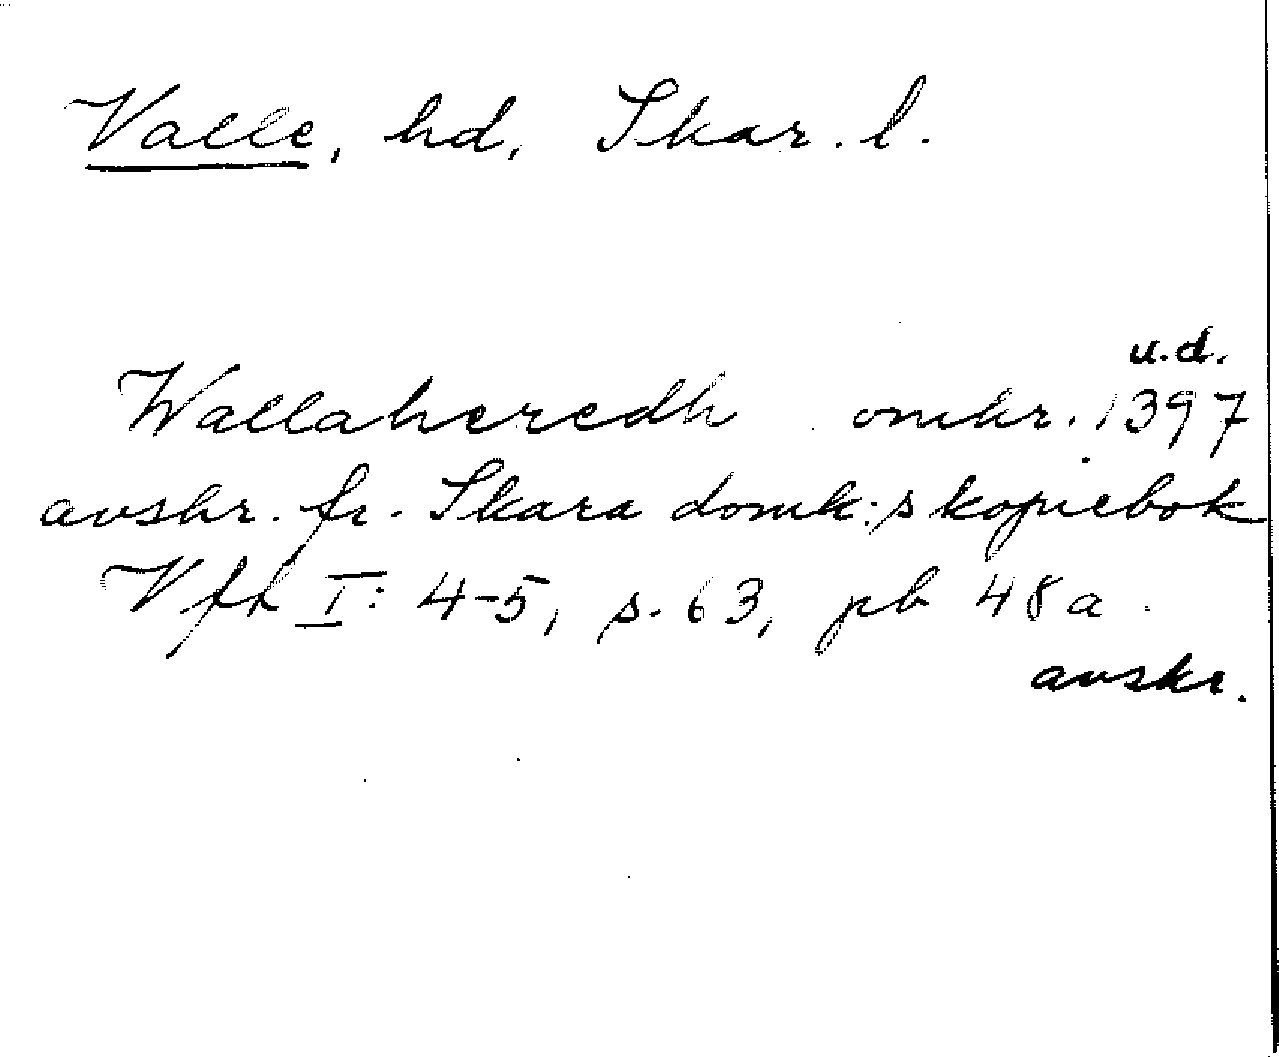 Valle, hd, Skar. l.
u.d.
Wallaheredh omkr. 1397
avskr. fr. Skara domk:s kopiebok
Vfh I: 4-5, s. 63, pb 48 a.
avskr.